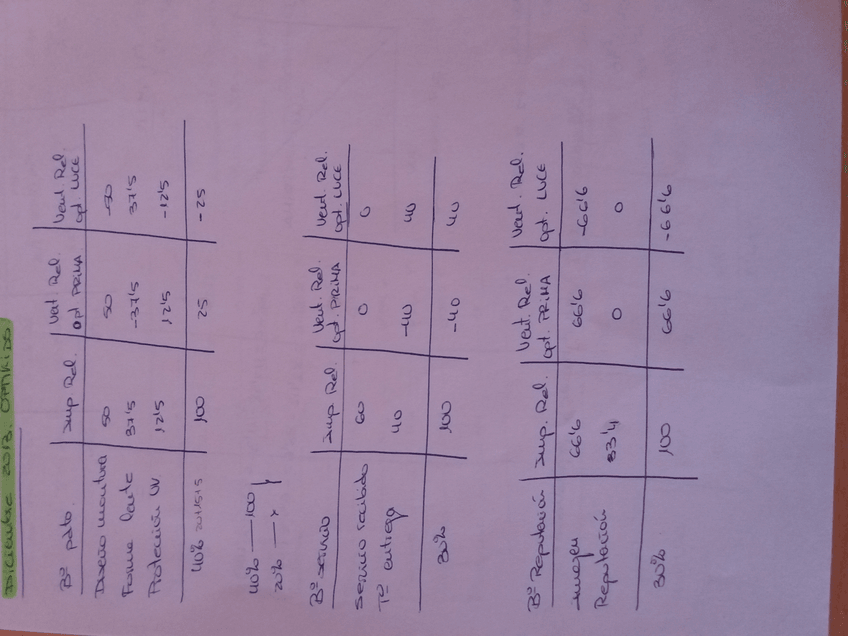 DICIEMBRE 2013. OPTIKIDS
Bº pdto. Imp Rel. Vent. Rel. Opt PRIMA Vent. Rel. Opt LUCE
Diseño montura 50 50 -50
Forma lente 37'5 -37'5 37'5
Protección UV 12'5 12'5 -12'5
40% 100 25 -25
40% — 100
20% — x
Bº servicio Imp Rel. Vent. Rel. Opt. PRIMA Vent. Rel. Opt. LUCE
Servicio recibido 60 0 0
Tº entrega 40 -40 40
30% 100 -40 40
Bº Reputación Imp. Rel. Vent. Rel. Opt. PRIMA Vent. Rel. Opt. LUCE
Imagen 66'6 66'6 -66'6
Reputación 33'4 0 0
30% 100 66'6 -66'6